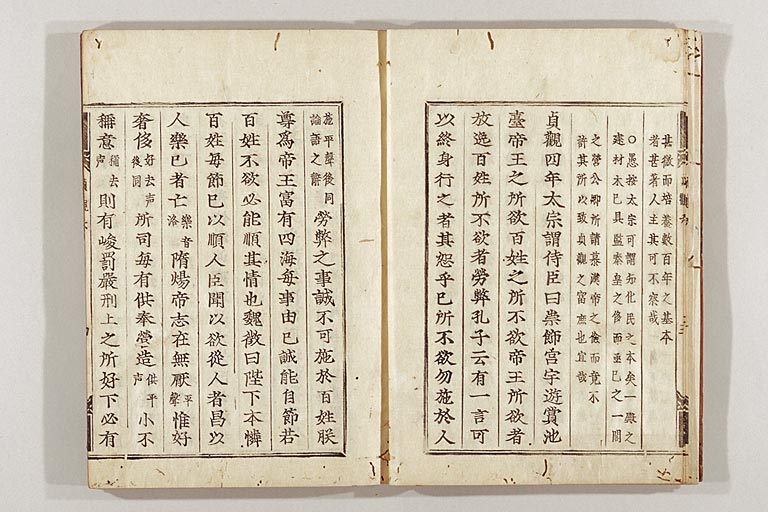 甚微而培養數百年之基本
者甚著人主其可不察哉
○愚按太宗可謂知化民之本矣一殿之
建材木已具鑑秦皇之侈而亟已之一閣
之營公卿所請慕漢帝之儉而竟不
許其所以致貞觀之富庶也宜哉
貞觀四年太宗謂侍臣曰崇飾宮宇遊賞池
臺帝王之所欲百姓之所不欲帝王所欲者
放逸百姓所不欲者勞弊孔子云有一言可
以終身行之者其恕乎己所不欲勿施於人
施平聲後同論語之辭勞弊之事誠不可施於百姓朕
尊爲帝王富有四海每事由己誠能自節若
百姓不欲必能順其情也魏徵曰陛下本憐
百姓每節己以順人臣聞以欲從人者昌以
人樂己者亡樂音洛隋煬帝志在無厭平聲惟好
奢侈好去声後同所司每有供奉營造供平声小不
稱意稱去声則有峻罰嚴刑上之所好下必有